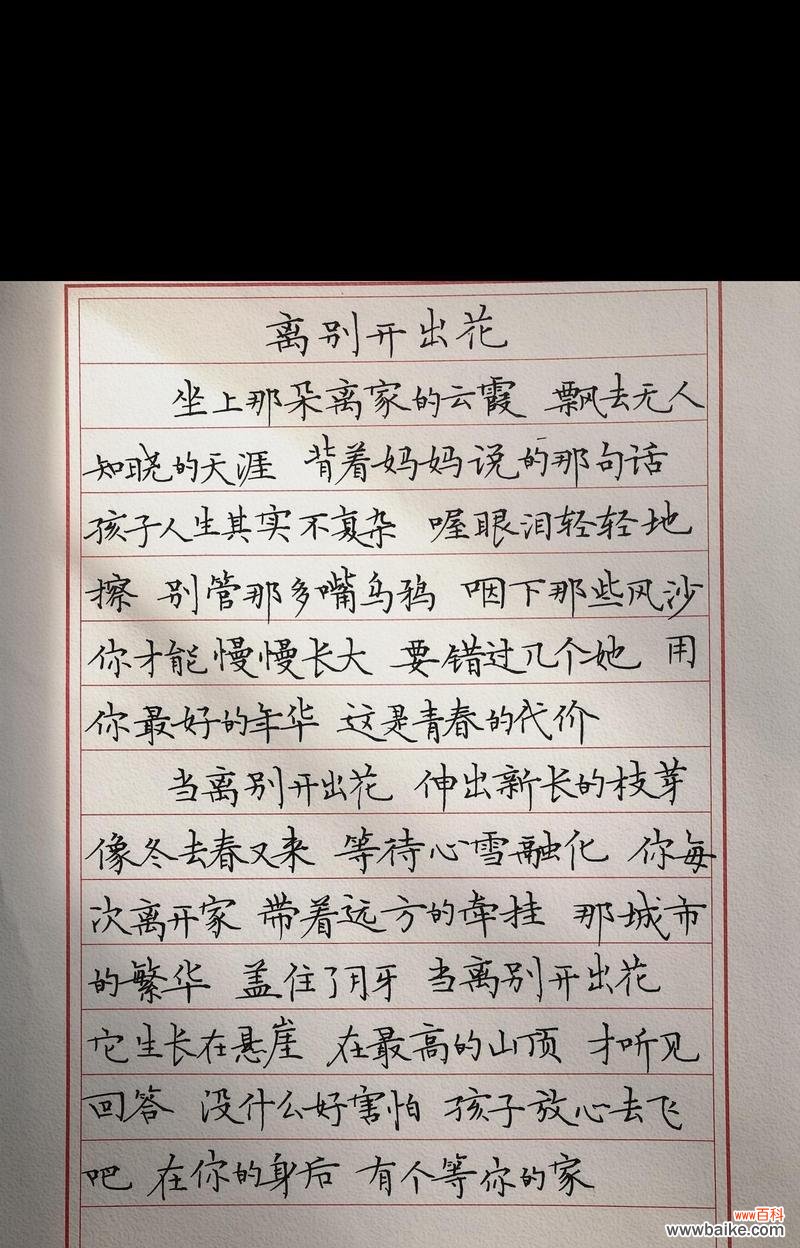 离别开出花
坐上那朵离家的云霞 飘去无人
知晓的天涯 背着妈妈说的那句话
孩子人生其实不复杂 喔眼泪轻轻地
擦 别管那多嘴乌鸦 咽下那些风沙
你才能慢慢长大 要错过几个她 用
你最好的年华 这是青春的代价
当离别开出花 伸出新长的枝芽
像冬去春又来 等待心雪融化 你每
次离开家 带着远方的牵挂 那城市
的繁华 盖住了月牙 当离别开出花
它生长在悬崖 在最高的山顶 才听见
回答 没什么好害怕 孩子放心去飞
吧 在你的身后 有个等你的家
www百科
www.baike.com